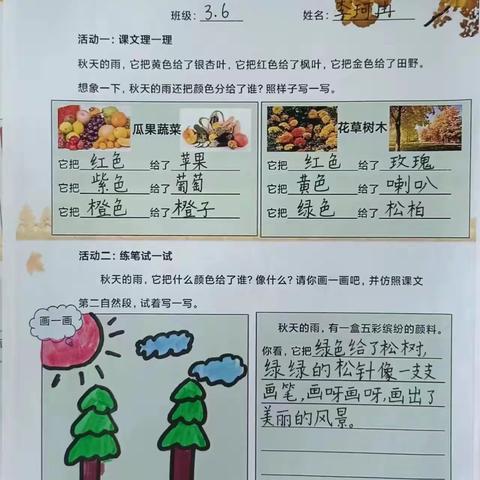 班级：3.6 姓名：李珂冉
活动一：课文理一理
秋天的雨，它把黄色给了银杏叶，它把红色给了枫叶，它把金色给了田野。
想象一下，秋天的雨还把颜色分给了谁？照样子写一写。
瓜果蔬菜
它把红色给了苹果
它把紫色给了葡萄
它把橙色给了橙子
花草树木
它把红色给了玫瑰
它把黄色给了喇叭
它把绿色给了松柏
活动二：练笔试一试
秋天的雨，它把什么颜色给了谁？像什么？请你画一画吧，并仿照课文
第二自然段，试着写一写。
画一画
秋天的雨，有一盒五彩缤纷的颜料。
你看，它把绿色给了松树，
绿绿的松针像一支支
画笔，画呀画呀，画出了
美丽的风景。